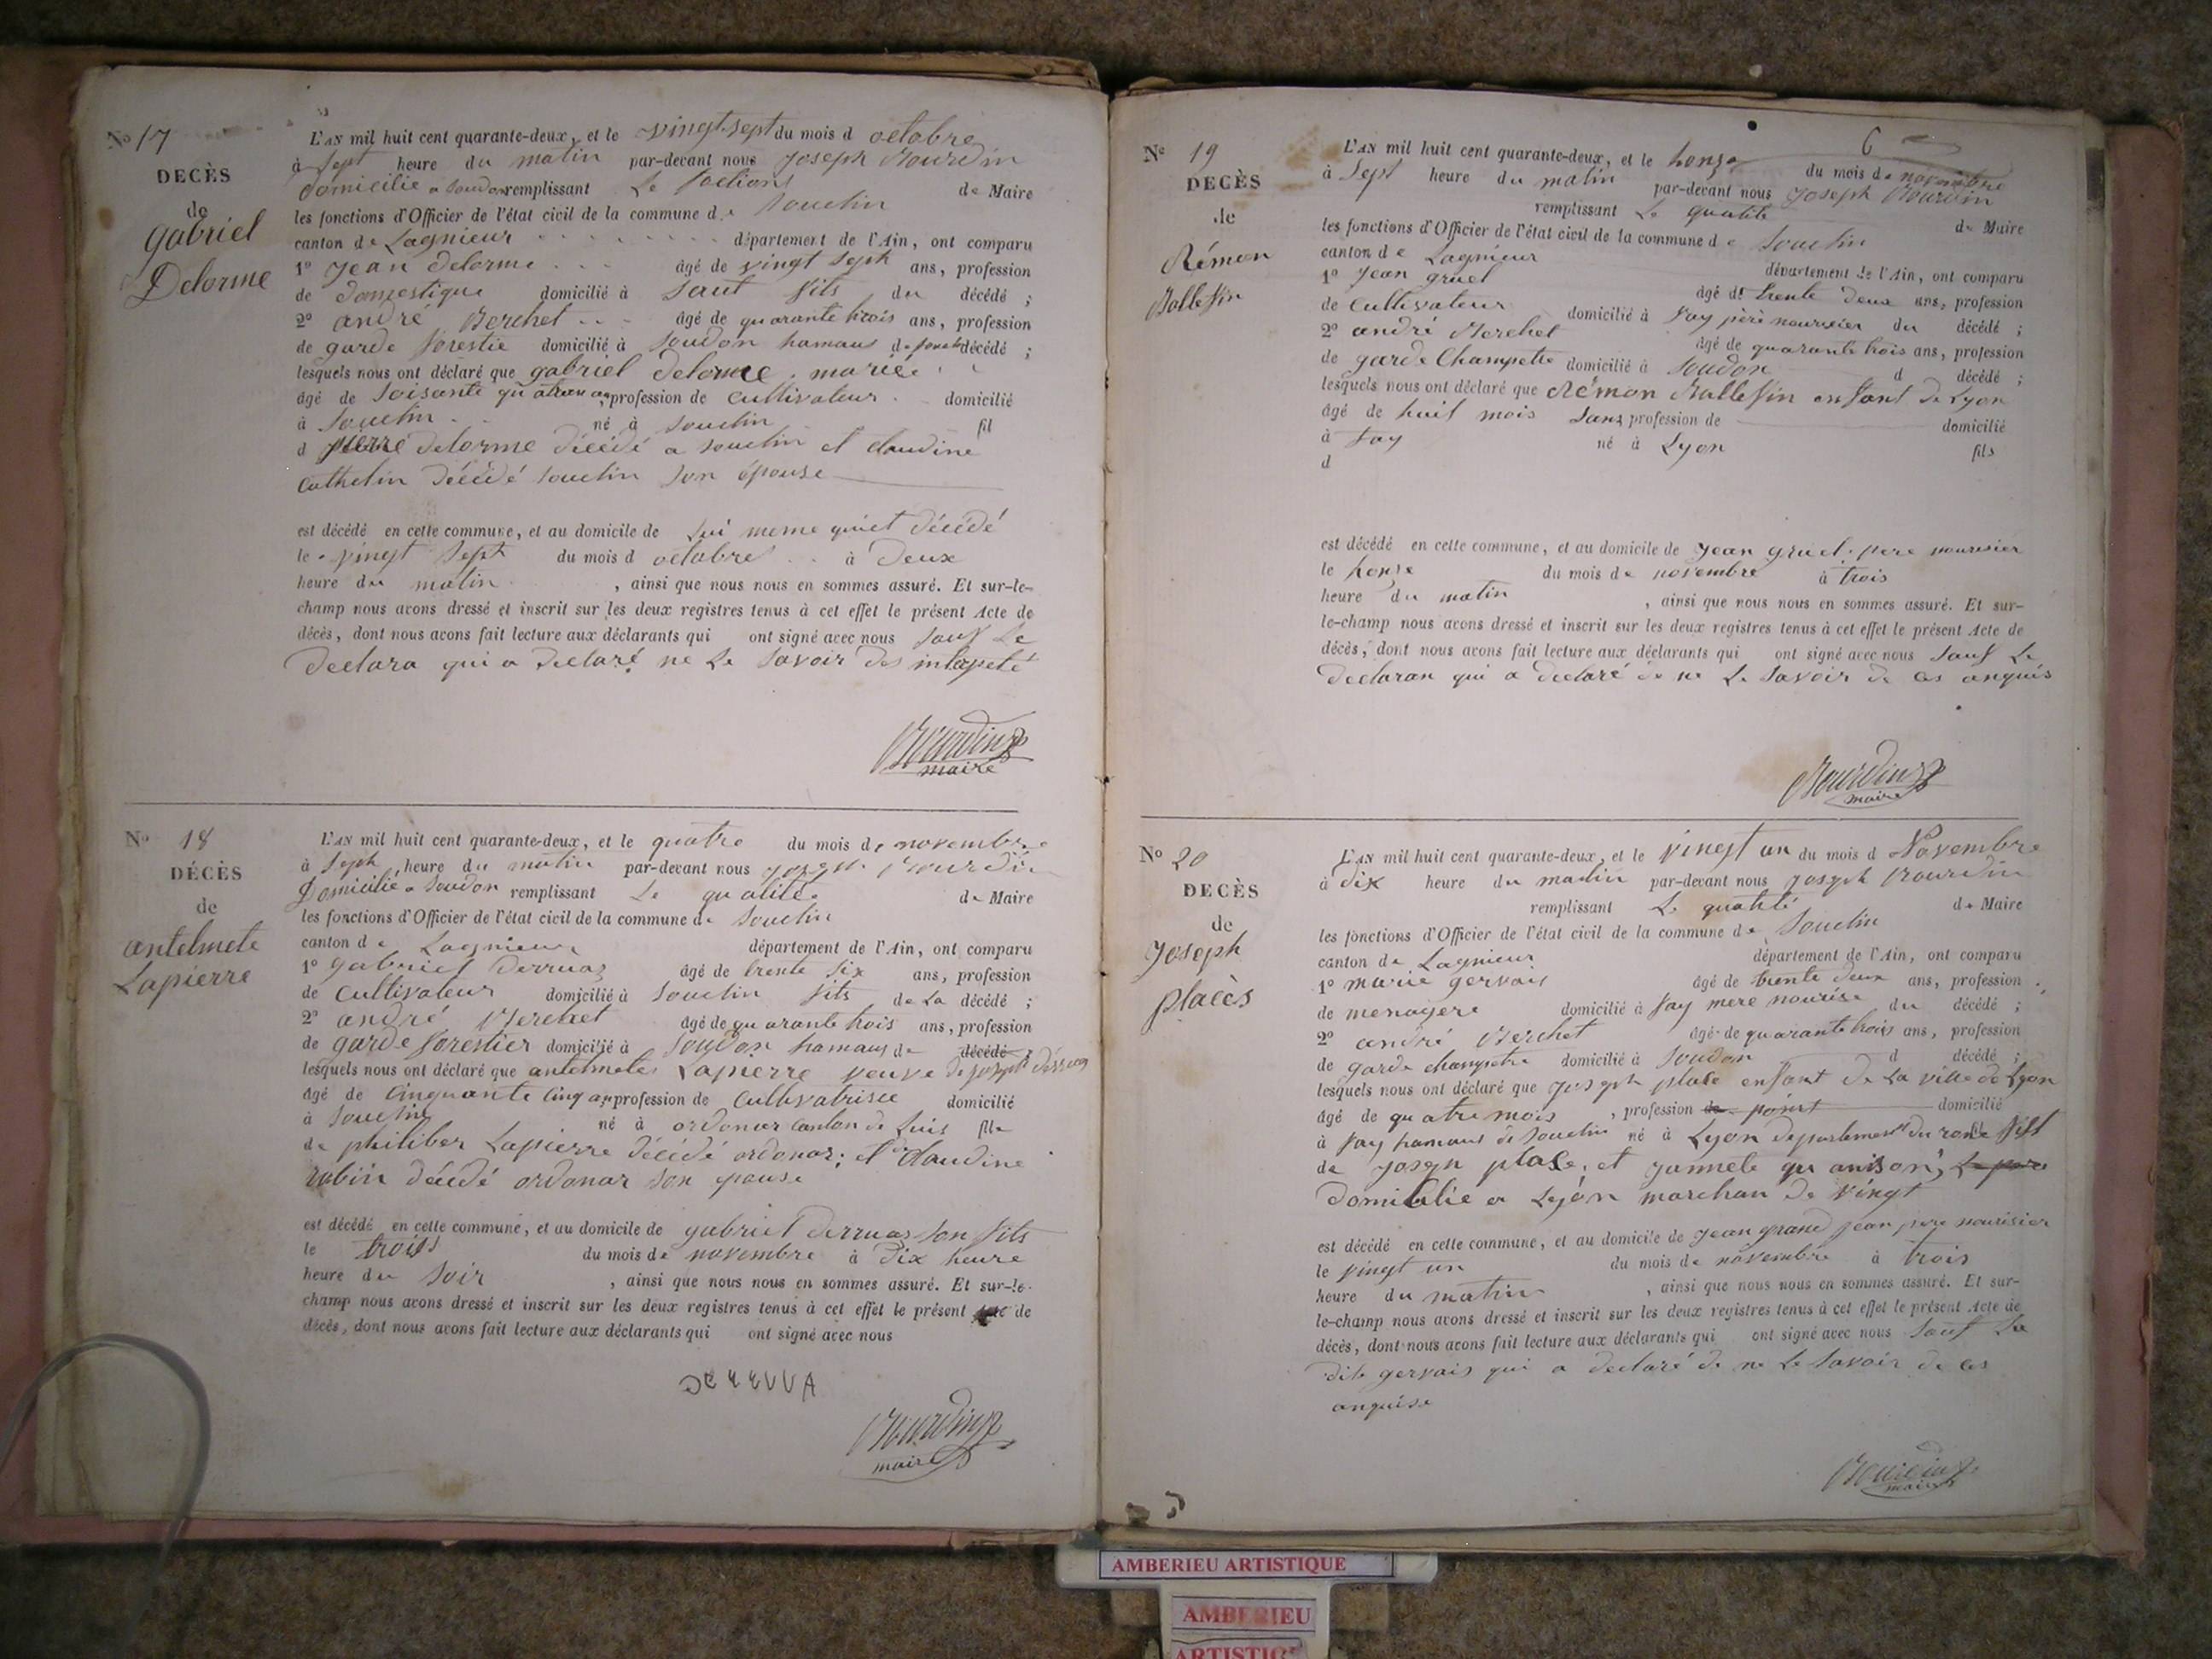 No 17
DECÈS
de
gabriel
Delorme
L'AN mil huit cent quarante-deux, et le vingt sept du mois d octobre
à sept heure du matin par-devant nous joseph Bourdin
domicilié a soudon remplissant Le foctions de Maire
les fonctions d'Officier de l'état civil de la commune de souclin
canton de Lagnieur département de l'Ain, ont comparu
1º jean delorme âgé de vingt seph ans, profession
de domestique domicilié à saut fils du décédé ;
2º andré Berchet âgé de quarante trois ans, profession
de garde forestie domicilié à soudon hamaus de décédé ;
lesquels nous ont déclaré que gabriel delorme marié
âgé de soisante profession de cultivateur domicilié
à souclin né à souclin fil
d pierre delorme décédé a souclin et claudine
Cathelin décédé souclin son épouse
est décédé en cette commune, et au domicile de lui meme quiet décédé
le vingt sept du mois d octobre à deux
heure du matin , ainsi que nous nous en sommes assuré. Et sur-le-
champ nous avons dressé et inscrit sur les deux registres tenus à cet effet le présent Acte de
décès, dont nous avons fait lecture aux déclarants qui ont signé avec nous sauf Le
declara qui a declaré ne Le savoir des
Bourdin
maire
No 18
DÉCÈS
de
antelmete
Lapierre
L'AN mil huit cent quarante-deux, et le quatre du mois de novembre
à seph heure du matin par-devant nous joseph Bourdin
Domicilié a soudon remplissant Le qualité de Maire
les fonctions d'Officier de l'état civil de la commune de souclin
canton de Lagnieur département de l'Ain, ont comparu
1º gabriel derruas âgé de trente six ans, profession
de cultivateur domicilié à souclin fils de La décédé ;
2º andré Berchet âgé de quarante trois ans, profession
de garde forestier domicilié à soudon hamaus de décédé ;
lesquels nous ont déclaré que antelmete Lapierre veuve de joseph
âgé de cinquante cinq an profession de cultivatrise domicilié
à souclin né à ordonar canton de Luis fille
de philiber Lapierre décédé ordonar; et claudine
robin décédé ordonar son epouse
est décédé en cette commune, et au domicile de gabriel derruas son fils
le trois du mois de novembre à dix heure
heure du soir , ainsi que nous nous en sommes assuré. Et sur-le-
champ nous avons dressé et inscrit sur les deux registres tenus à cet effet le présent de
décès, dont nous avons fait lecture aux déclarants qui ont signé avec nous
Bourdin
maire
6
No 19
DECÈS
de
Rémon
Ballefin
L'AN mil huit cent quarante-deux, et le honze du mois de novembre
à sept heure du matin par-devant nous joseph Bourdin
remplissant Le qualité de Maire
les fonctions d'Officier de l'état civil de la commune de souclin
canton de Lagnieur département de l'Ain, ont comparu
1º jean gruel âgé de trente deux ans, profession
de cultivateur domicilié à fay père nourisier du décédé ;
2º andré Berchet âgé de quarante trois ans, profession
de garde champetre domicilié à soudon d décédé ;
lesquels nous ont déclaré que Rémon Ballefin enfant de Lyon
âgé de huit mois sans profession de domicilié
à fay né à Lyon fils
d
est décédé en cette commune, et au domicile de jean gruel pere nourisier
le honse du mois de novembre à trois
heure du matin , ainsi que nous nous en sommes assuré. Et sur-
le-champ nous avons dressé et inscrit sur les deux registres tenus à cet effet le présent Acte de
décès, dont nous avons fait lecture aux déclarants qui ont signé avec nous sauf Le
declaran qui a declaré de ne Le savoir de ces anquis
Bourdin
maire
No 20
DECÈS
de
joseph
placès
L'AN mil huit cent quarante-deux, et le vingt un du mois d Novembre
à dix heure du matin par-devant nous joseph Bourdin
remplissant Le qualité de Maire
les fonctions d'Officier de l'état civil de la commune de souclin
canton de Lagnieur département de l'Ain, ont comparu
1º marie gervais âgé de trente deux ans, profession
de menagere domicilié à fay mere nourise du décédé ;
2º andré Berchet âgé de quarante trois ans, profession
de garde champetre domicilié à soudon d décédé ;
lesquels nous ont déclaré que joseph plase enfant de La ville de Lyon
âgé de quatre mois , profession de point domicilié
à fay hamaus de souclin né à Lyon departement du rone fils
de joseph plase, et jannete
domicilié a Lyon marchan de vingt
est décédé en cette commune, et au domicile de jean grand jean pere nourisier
le vingt un du mois de novembre à trois
heure du matin , ainsi que nous nous en sommes assuré. Et sur-
le-champ nous avons dressé et inscrit sur les deux registres tenus à cet effet le présent Acte de
décès, dont nous avons fait lecture aux déclarants qui ont signé avec nous sauf La
dite gervais qui a declaré de ne Le savoir de ces
anquise
Bourdin
maire
AMBERIEU ARTISTIQUE
AMBERIEU
ARTISTIQUE